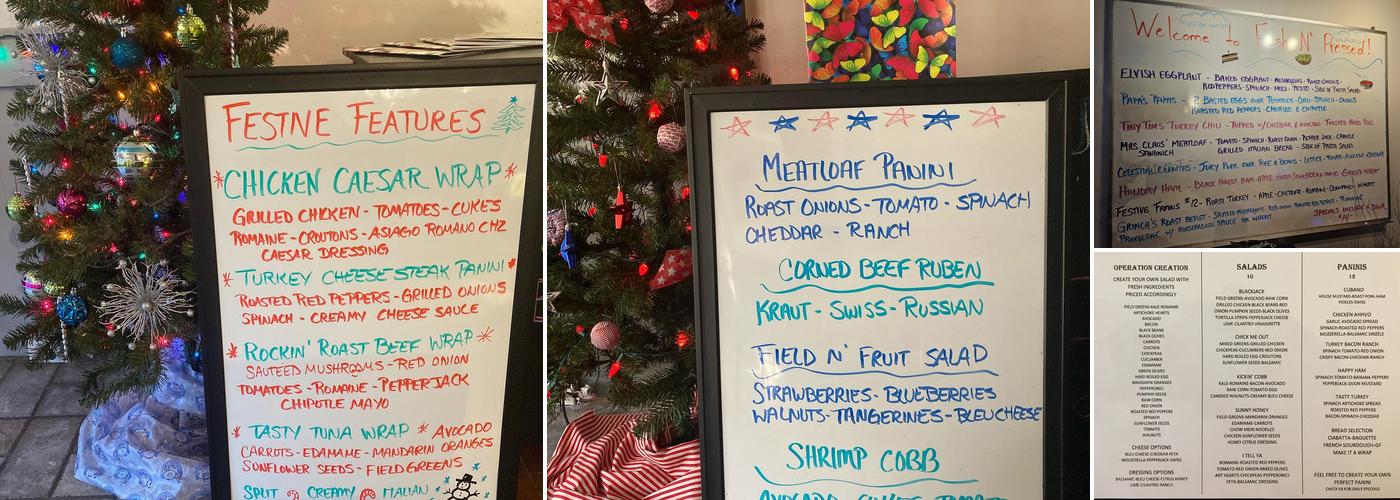 FESTIVE FEATURES
CHICKEN CAESAR WRAP
GRILLED CHICKEN - TOMATOES - CUKES
ROMAINE - CROUTONS - ASIAGO ROMANO CHZ
CAESAR DRESSING
TURKEY CHEESE STEAK PANINI
ROASTED RED PEPPERS - GRILLED ONIONS
SPINACH - CREAMY CHEESE SAUCE
ROCKIN' ROAST BEEF WRAP
SAUTEED MUSHROOMS - RED ONION
TOMATOES - ROMAINE - PEPPERJACK
CHIPOTLE MAYO
TASTY TUNA WRAP * AVOCADO
CARROTS - EDAMAME - MANDARIN ORANGES
SUNFLOWER SEEDS - FIELD GREENS
SPLIT CREAMY ITALIAN
MEATLOAF PANINI
ROAST ONIONS - TOMATO - SPINACH
CHEDDAR - RANCH
CORNED BEEF RUBEN
KRAUT - SWISS - RUSSIAN
FIELD N' FRUIT SALAD
STRAWBERRIES - BLUEBERRIES
WALNUTS - TANGERINES - BLEU CHEESE
SHRIMP COBB
Welcome to Fresh N' Pressed!
ELVISH EGGPLANT - BAKED EGGPLANT - MUSHROOMS - ROAST ONIONS -
RED PEPPERS - SPINACH - MOZZ - PESTO - SIDE OF PASTA SALAD
PAPA'S PAPAS - 2 BASTED EGGS OVER POTATOES - CORN - SPINACH - ONIONS
ROASTED RED PEPPERS - CHORIZO & CHIPOTLE
TINY TIM'S TURKEY CHILI - TOPPED W/ CHEDDAR & AVOCADO TOASTED HARD ROLL
MRS. CLAUS' MEATLOAF - TOMATO - SPINACH - ROAST ONION - PEPPER JACK - CHIPOTLE -
SANDWICH GRILLED ITALIAN BREAD - SIDE OF PASTA SALAD
CELESTIAL CARNITAS - JUICY PORK OVER RICE & BEANS - LETTUCE - TOMATO - AVOCADO - CHEDDAR
HOLIDAY HAM - BLACK FOREST HAM - APPLE - GOUDA GRILLED WHEAT
FESTIVE FAMOUS #12 - ROAST TURKEY - APPLE - CHEDDAR - ROMAINE WHEAT
GRINCH'S ROAST BEAST - SAUTEED MUSHROOMS - RED ONION - ROASTED RED PEPPER - ROMAINE
PROVOLONE W/ HORSERADISH SAUCE ON WHEAT
SPECIALS INCLUDE A DRINK
OPERATION CREATION
CREATE YOUR OWN SALAD WITH
FRESH INGREDIENTS
PRICED ACCORDINGLY
FIELD GREENS-KALE-ROMAINE
ARTICHOKE HEARTS
AVOCADO
BACON
BLACK BEANS
BLACK OLIVES
CARROTS
CHICKEN
CHICKPEAS
CUCUMBER
EDAMAME
GREEN OLIVES
HARD BOILED EGG
MANDARIN ORANGES
PEPPERONCI
PUMPKIN SEEDS
RAW CORN
RED ONION
ROASTED RED PEPPERS
SPINACH
SUNFLOWER SEEDS
TOMATO
WALNUTS
CHEESE OPTIONS
BLEU CHEESE-CHEDDAR-FETA
MOZZARELLA-PEPPERJACK-SWISS
DRESSING OPTIONS
BALSAMIC-BLEU CHEESE-CITRUS HONEY
LIME CILANTRO-RANCH
SALADS
10
BLACKJACK
FIELD GREENS-AVOCADO-RAW CORN
GRILLED CHICKEN-BLACK BEANS-RED
ONION-PUMPKIN SEEDS-BLACK OLIVES
TORTILLA STRIPS-PEPPERJACK CHEESE
LIME CILANTRO VINAIGRETTE
CHICK ME OUT
MIXED GREENS-GRILLED CHICKEN
CHICKPEAS-CUCUMBERS-RED ONION
HARD BOILED EGG-CROUTONS
SUNFLOWER SEEDS-BALSAMIC
KICKIN' COBB
KALE-ROMAINE-BACON-AVOCADO
RAW CORN-TOMATO-EGG
CANDIED WALNUTS-CREAMY BLEU CHEESE
SUNNY HONEY
FIELD GREENS-MANDARIN ORANGES
EDAMAME-CARROTS
CHOW MEIN NOODLES
CHICKEN-SUNFLOWER SEEDS
HONEY CITRUS DRESSING
I TELL YA
ROMAINE-ROASTED RED PEPPERS
TOMATO-RED ONION-MIXED OLIVES
ART HEARTS-CHICKPEAS-PEPPERONCINI
FETA-BALSAMIC DRESSING
PANINIS
CUBANO
HOUSE MUSTARD-ROAST PORK-HAM
PICKLES-SWISS
CHICKEN AHHVO
GARLIC AVOCADO SPREAD
SPINACH-ROASTED RED PEPPERS
MOZZARELLA-BALSAMIC DRIZZLE
TURKEY BACON RANCH
SPINACH-TOMATO-RED ONION
CRISPY BACON-CHEDDAR-RANCH
HAPPY HAM
SPINACH-TOMATO-BANANA PEPPERS
PEPPERJACK-DIJON MUSTARD
TASTY TURKEY
SPINACH ARTICHOKE SPREAD
ROASTED RED PEPPERS
BACON-SPINACH-CHEDDAR
BREAD SELECTION
CIABATTA-BAGUETTE
FRENCH SOURDOUGH-GF
MAKE IT A WRAP
FEEL FREE TO CREATE YOUR OWN
PERFECT PANINI
CHECK FB FOR DAILY SPECIALS